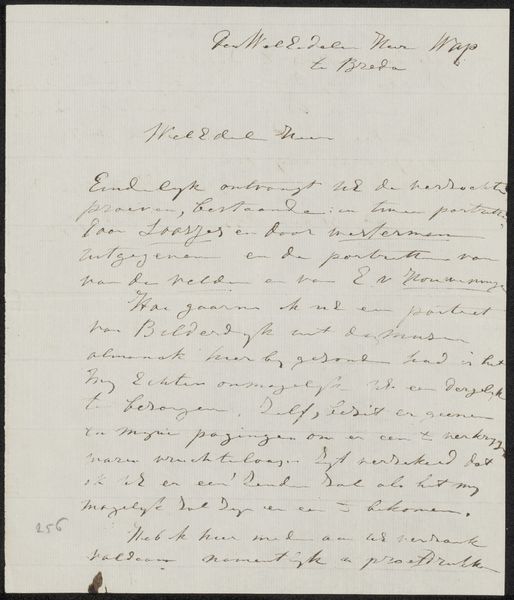 Den WelEdelen Heer Wap
te Breda
WelEdele Heer
Eindelijk ontvangt UE de verzochte
proeven, bestaande in twee portretten
door Loosjes en door Westerman
uitgegeven en de portretten van
van de Velde en van E v
Hoe gaarne ik UE een portret
van Bilderdijk uit de muzen
almanak hier bij gezonden had is het
mij echter onmogelijk UE een dergelijk
te bezorgen. Zelf bezit er geenen
en mijne pogingen om er een te verkrijgen
waren vruchteloos. Zijt verzekerd dat
ik UE er een zenden zal als het mij
mogelijk zal zijn er een te bekomen.
Heb ik hier mede aan UE verzoek
voldaan namentlijk in proefdrukken
256